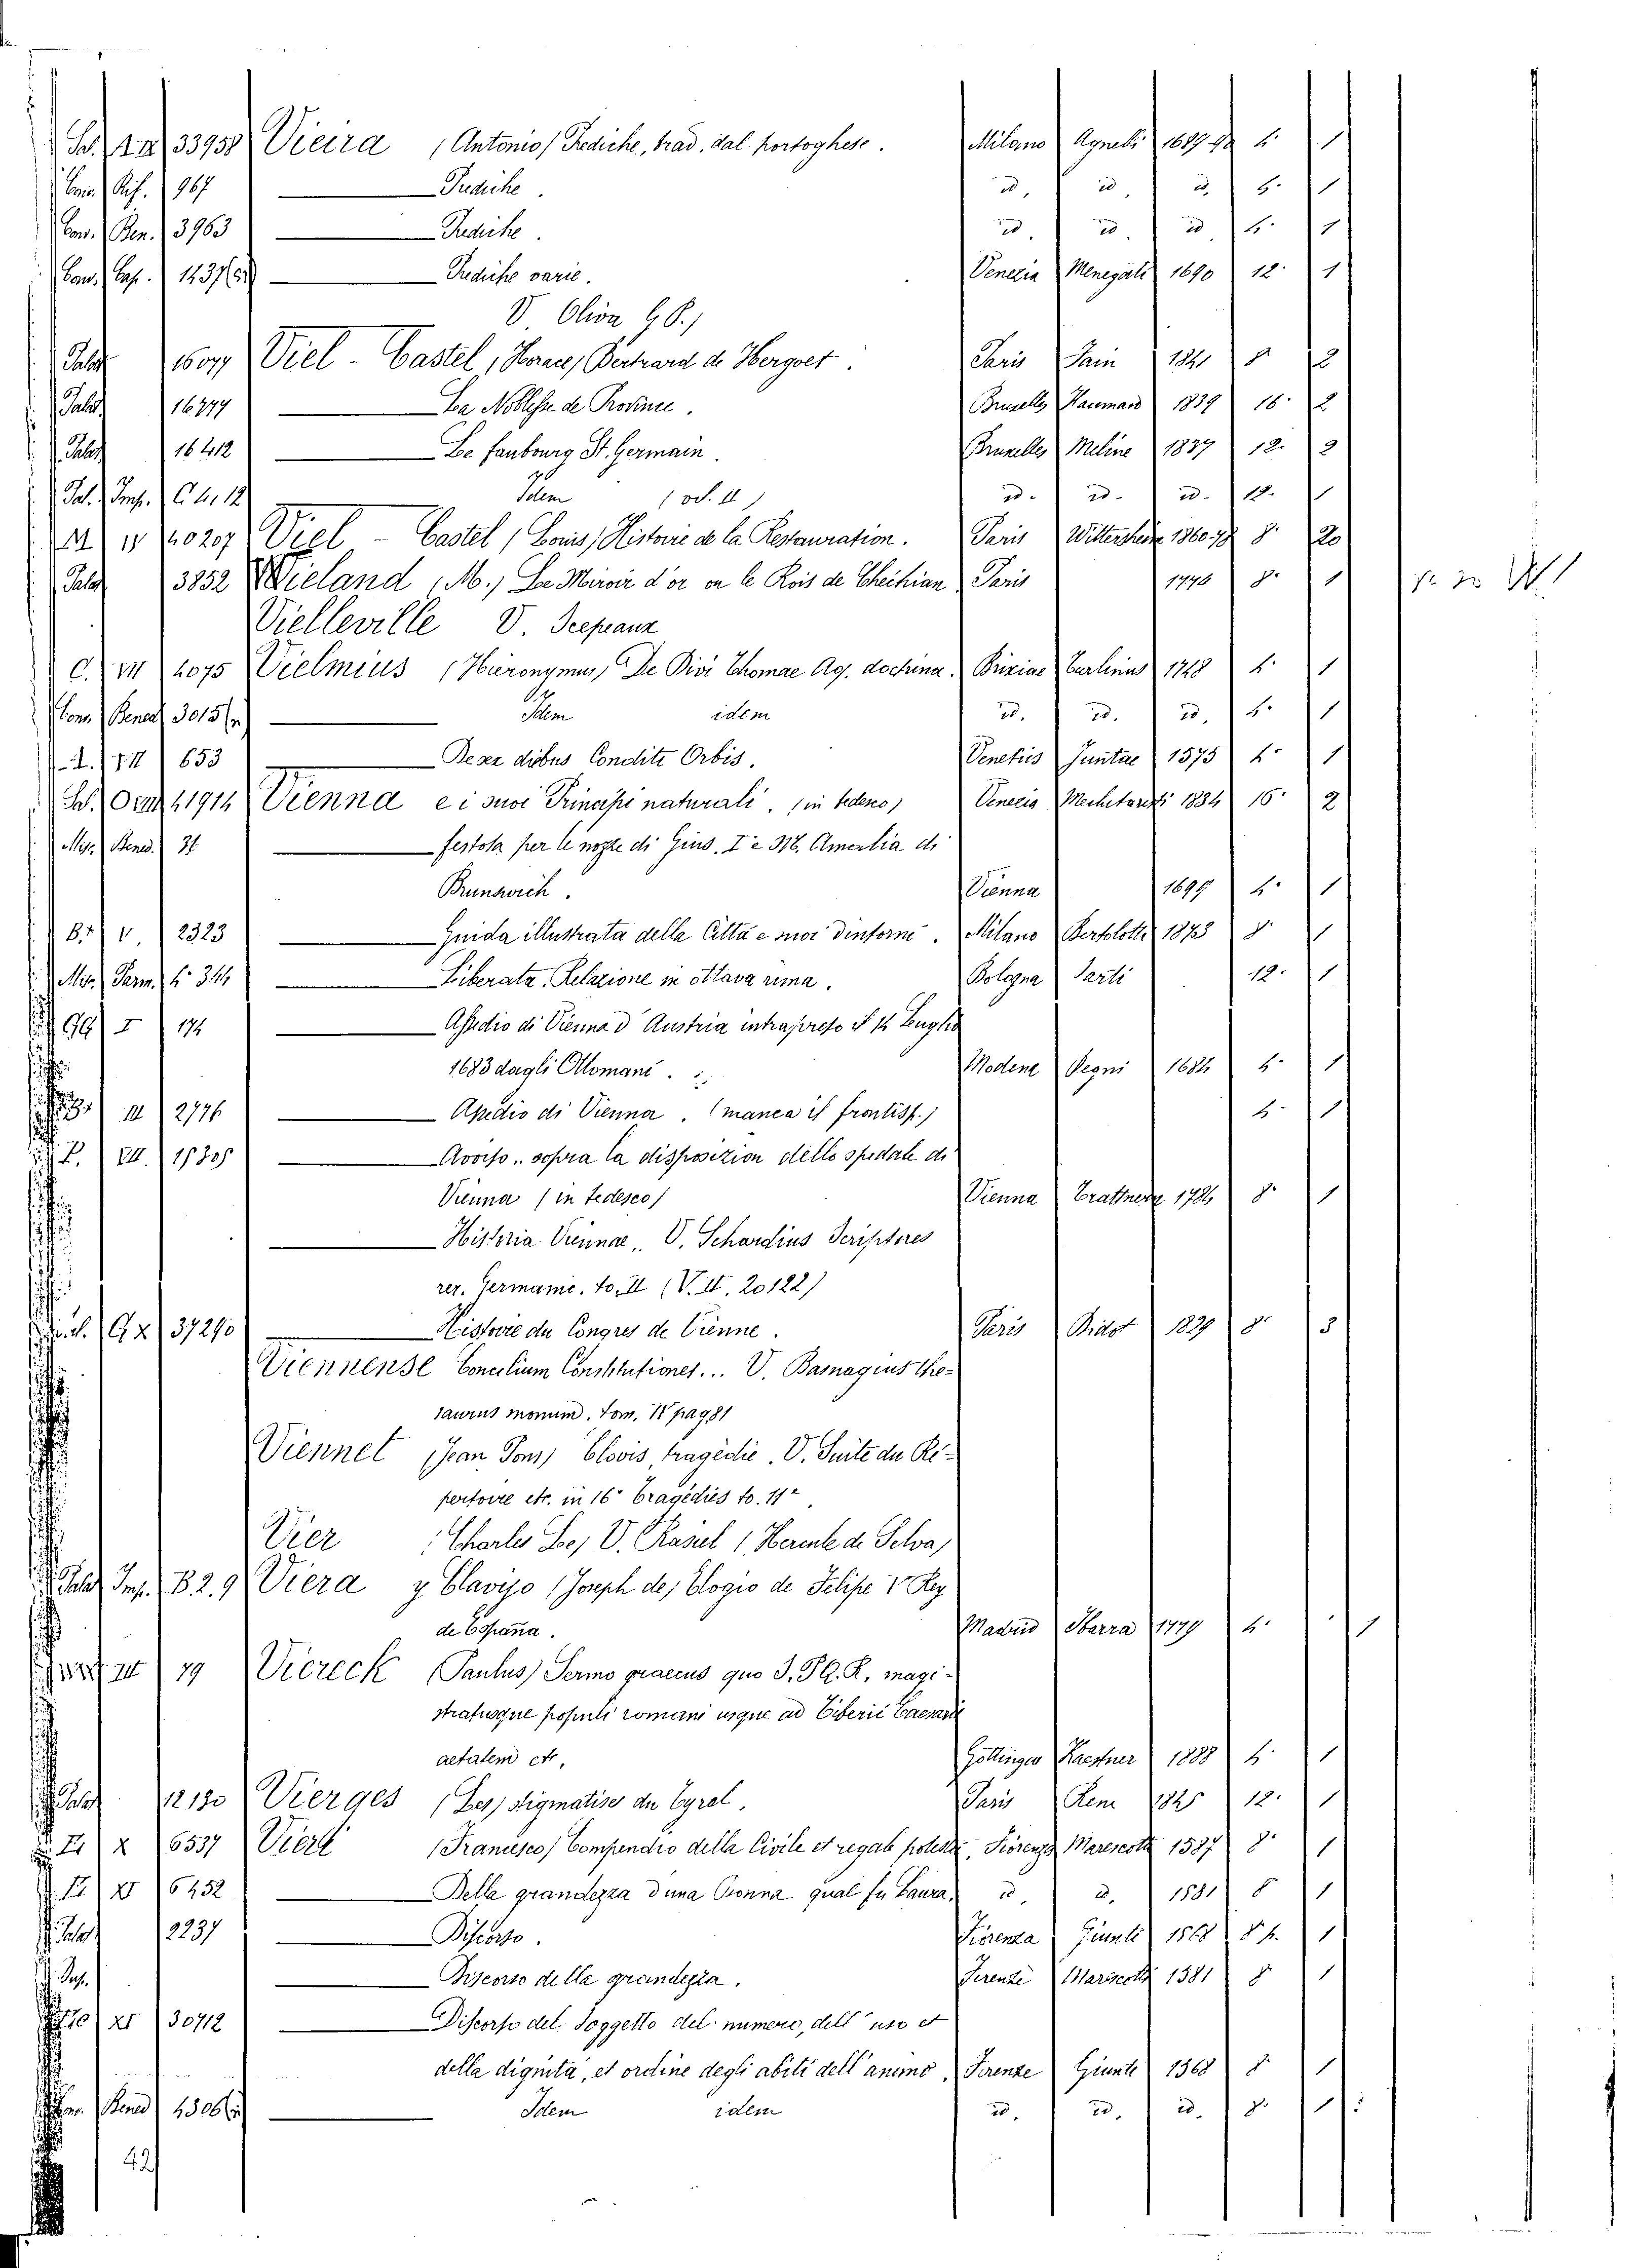 33958 Vieira (Antonio) Prediche, trad. dal portoghese. Milano Agnelli 1689-92 4° 1
Conv. Rif. 967 Prediche. id. id. id. 4° 1
Conv. Ben. 3963 Prediche. id. id. id. 4° 1
Conv. Cap. 1437 Prediche varie. Venezia Menegatti 1690 12° 1
V. Oliva G. P.)
Palat. 16077 Viel-Castel, Horace, Bertrand de Paris 1841 8° 2
Palat. 16477 La Noblesse de Province. Bruxelles Hauman 1839 16° 2
Palat. 16412 Le faubourg St. Germain. Bruxelles Meline 1837 12° 2
Pal. Imp. Idem (vol. II) id. id. id. 12° 1
40207 Viel-Castel (Louis) Histoire de la Restauration. Paris Wittersheim 1860-78 8° 20
Palat. 3852 Wieland (M.) Le Miroir d'or ou le Rois de Chechian Paris 1774 8° 1
Vielleville V. Scepeaux
C. VII 4075 Vielmius (Hieronymus) De Divi Thomae Aq. doctrina. Brixiae Turlinus 1748 4° 1
Conv. Bened. 3015 Idem idem id. id. id. 4° 1
653 De sex diebus Conditi Orbis. Venetiis Juntae 1575 4° 1
41914 Vienna e i suoi Principi naturali. (in tedesco) Venezia Mechitaristi 1884 16° 2
Misc. Bened. 31 festola per le nozze di Gius. I e M. Amelia di
Brunswich. Vienna 1699 4° 1
B. V. 2323 Guida illustrata della Città e suoi dintorni. Milano Bertolotti 1873 8° 1
Misc. Parm. 4° 314 Liberata. Relazione in ottava rima. Bologna Sarti 12° 1
I 174 Assedio di Vienna d'Austria intrapreso il 14 Luglio
1683 dagli Ottomani. Modena Degni 1684 4° 1
III 2776 Assedio di Vienna. (manca il frontisp.) 4° 1
Avviso, sopra la disposizion dello spedale di
Vienna (in tedesco) Vienna Trattnern 1784 8° 1
Historia Viennae. V. Schardius Scriptores
rer. Germanic. to. II (V. II. 20122)
37290 Histoire du Congres de Vienne. Paris Didot 1829 8° 3
Viennense Concilium Constitutiones... V. Basnagius The-
saurus monum. tom. IV pag 81
Viennet (Jean Pons) Clovis, tragédie. V. Suite du Ré-
pertoire etc. in 16° Tragédies to. 11°
Vier (Charles Le) V. Rasiel (Herente de Selva)
Palat. Imp. B. 2. 9 Viera y Clavijo (Joseph de) Elogio de Felipe V Rey
de España. Madrid Ibarra 1779 4° 1
79 Viereck (Paulus) Sermo graecus quo S. P. Q. R. magi-
stratusque populi romani usque ad Tiberii Caesaris
aetatem etc. Göttingen Kaestner 1888 4° 1
Palat. 12130 Vierges (Les) stigmatisées du Tyrol. Paris 1845 12° 1
X 6537 Vieri (Francesco) Compendio della Civile et regale potestà. Fiorenza Marescotti 1587 8° 1
XI 6452 Della grandezza d'una Donna qual fu Laura. id. id. 1581 8 1
Palat. 2237 Discorso. Fiorenza Giunti 1568 8 p. 1
Discorso della grandezza. Firenze Marescotti 1581 8 1
XI 30712 Discorso del Soggetto del numero, dell'uso et
della dignità, et ordine degli abiti dell'animo. Firenze Giunti 1568 8° 1
Bened. 4306 Idem idem id. id. id. 8° 1
42